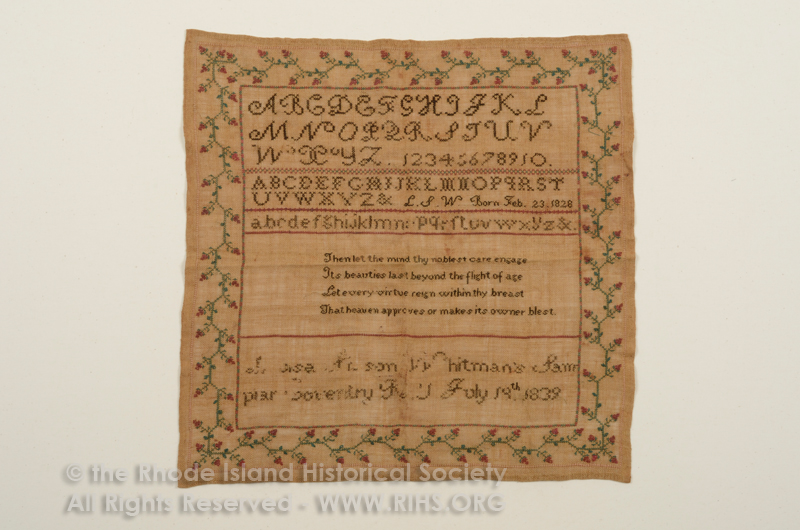 ABCDEFGHIJKL
MNOPQRSTUV
WXYZ. 12345678910.
ABCDEFGHIJKLMNOPQRST
UVWXYZ& L.S.W Born Feb. 23. 1828
abcdefghijklmn:pqrſtuvwxyz&.
Then let the mind thy noblest care engage
Its beauties last beyond the flight of age
Let every virtue reign within thy breast
That heaven approves or makes its owner blest.
Whitman's Sam
plar Coventry R I July 19th 1839
© the Rhode Island Historical Society
All Rights Reserved - WWW.RIHS.ORG